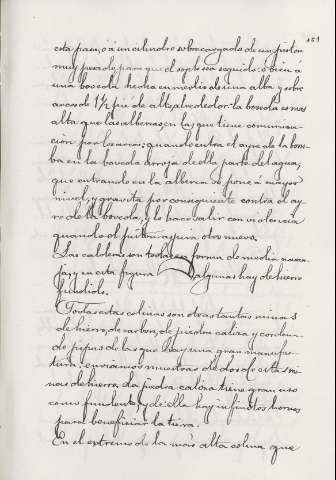 151
esta para, ó á un cilindro sobrecargado de un piston
muy pesado, para que el soplo sea seguido: ó bien á
una boveda hecha en medio de una alta y sobre
arcos de 1½ pie de alto, alrededor: la boveda es mas
alta que las albercas, en las que tiene comunica-
cion por los arcos: quando entra el ayre de la bom-
ba en la boveda arroja de ella parte del agua,
que entrando en la alberca se pone á mayor
nivel, y gravita por consequente contra el ay-
re de la boveda, y le hace salir con violencia
quando el piston aspira otro nuevo.
Las calderas son todas en forma de media naran-
ja, y en esta figura algunas hay de hierro
fundido.
Todas estas colinas son otras tantas minas
de hierro, de carbon, de piedra caliza y
de pipas de las que hay una gran manufac-
tura: enviamos muestras de dos de estas mi-
nas de hierro. La piedra caliza tiene gran uso
como fundente, y de ella hay infinitos hornos
para beneficiar la tierra.
En el extremo de la mas alta colina que